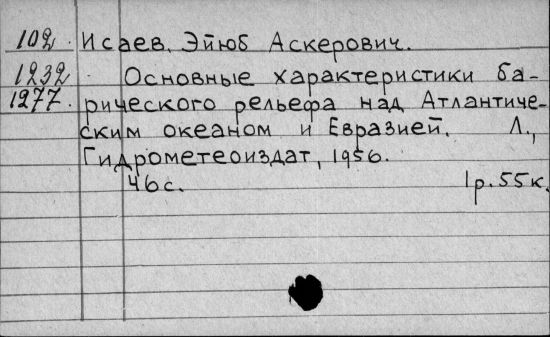 102. Исаев, Эйюб Аскерович.
1232 Основные характеристики ба-
1277. рического рельефа над Атлантиче-
ским океаном и Евразией. Л.,
Гидрометеоиздат, 1956.
46с. 1р.55к.